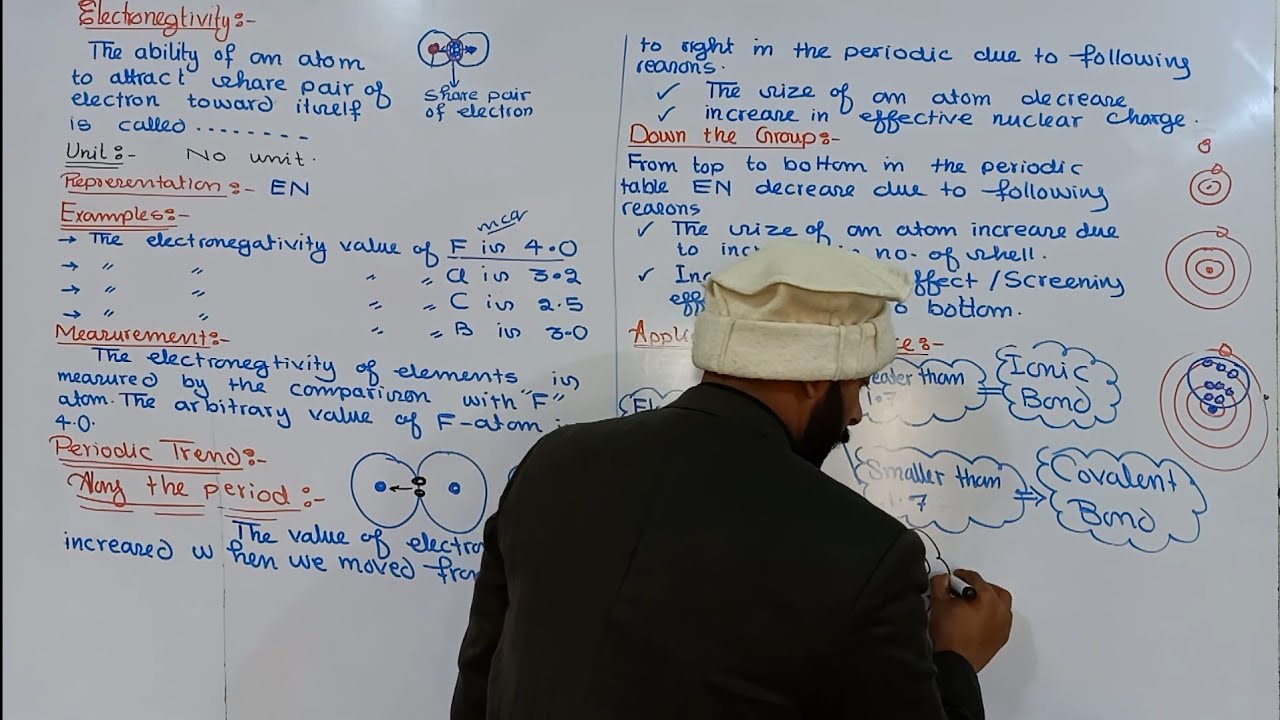 Electronegtivity:-
The ability of an atom
to attract share pair of
electron toward itself
is called ........
share pair
of electron
Unit:- No unit.
Representation:- EN
Examples:-
mcq
→ The electronegativity value of F is 4.0
→ " " " " Cl is 3.2
→ " " " " C is 2.5
→ " " " " B is 3.0
Measurement:-
The electronegtivity of elements is
measured by the comparison with "F"
atom. The arbitrary value of F-atom
4.0.
Periodic Trend:-
Along the period:-
The value of
increased when we moved
to right in the periodic due to following
reasons.
✓ The size of an atom decrease
✓ increase in effective nuclear charge.
Down the Group:-
From top to bottom in the periodic
table EN decrease due to following
reasons
✓ The size of an atom increase due
to no. of shell.
✓ /Screening
bottom.
than
Ionic
Bond
Smaller than
.7
=>
Covalent
Bond